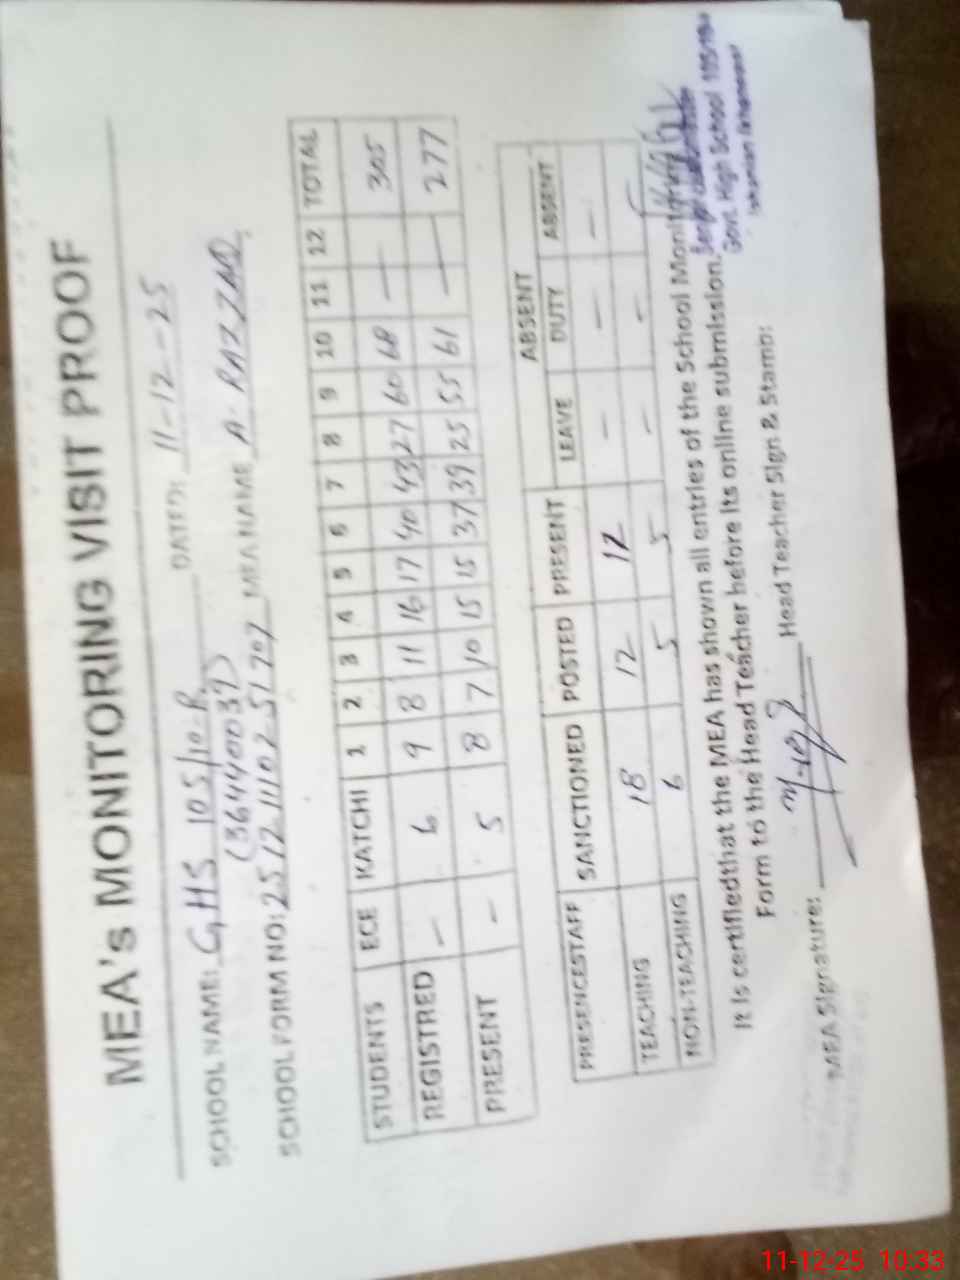 MEA's MONITORING VISIT PROOF
SCHOOL NAME: GHS 105/10-R DATED: 11-12-25
(36440039)
SCHOOL FORM NO: 25121110251707 MEA NAME A. RAZZAQ
STUDENTS ECE KATCHI 1 2 3 4 5 6 7 8 9 10 11 12 TOTAL
REGISTRED — 6 9 8 11 16 17 40 43 27 60 68 — — 305
PRESENT — 5 8 7 10 15 15 37 39 25 55 61 — — 277
ABSENT
PRESENCESTAFF SANCTIONED POSTED PRESENT LEAVE DUTY ABSENT
TEACHING 18 12 12 — — —
NON-TEACHING 6 5 5 — — —
It is certifiedthat the MEA has shown all entries of the School Monitoring
Form to the Head Teacher before its online submission.
Govt. High School 105/10-R
MEA Signature: Head Teacher Sign & Stamp:
11-12-25 10:33